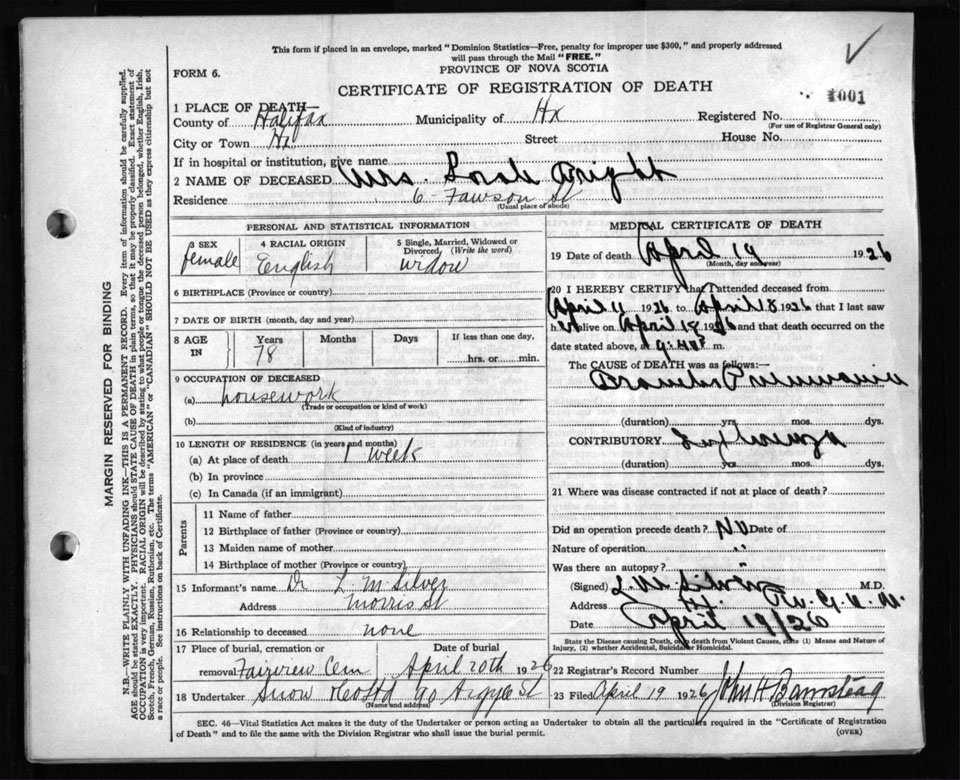 This form if placed in an envelope, marked "Dominion Statistics—Free, penalty for improper use $300," and properly addressed
will pass through the Mail "FREE."
PROVINCE OF NOVA SCOTIA
FORM 6.
CERTIFICATE OF REGISTRATION OF DEATH
1001
1 PLACE OF DEATH—
County of Halifax Municipality of Hx Registered No.
(For use of Registrar General only)
City or Town Hx Street House No.
If in hospital or institution, give name
2 NAME OF DECEASED Mrs. Sarah Wright
Residence 6 Fawson St
(Usual place of abode)
PERSONAL AND STATISTICAL INFORMATION
3 SEX female
4 RACIAL ORIGIN English
5 Single, Married, Widowed or Divorced (Write the word) widow
6 BIRTHPLACE (Province or country)
7 DATE OF BIRTH (month, day and year)
8 AGE IN Years 78 Months Days If less than one day, hrs. or min.
9 OCCUPATION OF DECEASED
(a) housework
(Trade or occupation or kind of work)
(b)
(Kind of industry)
10 LENGTH OF RESIDENCE (in years and months)
(a) At place of death 1 week
(b) In province
(c) In Canada (if an immigrant)
Parents
11 Name of father
12 Birthplace of father (Province or country)
13 Maiden name of mother
14 Birthplace of mother (Province or country)
15 Informant's name Dr L. M. Silver
Address Morris St
16 Relationship to deceased none
17 Place of burial, cremation or removal Fairview Cem
Date of burial April 20th 1926
18 Undertaker Snow & Co Ltd 90 Argyle St
(Name and address)
MEDICAL CERTIFICATE OF DEATH
19 Date of death April 19 1926
(Month, day and year)
20 I HEREBY CERTIFY that I attended deceased from
April 11 1926 to April 18 1926 that I last saw
her alive on April 18 1926 and that death occurred on the
date stated above, at m.
The CAUSE of DEATH was as follows:—
Broncho Pneumonia
(duration) yrs. mos. dys.
CONTRIBUTORY Influenza
(duration) yrs. mos. dys.
21 Where was disease contracted if not at place of death?
Did an operation precede death? No Date of
Nature of operation "
Was there an autopsy? "
(Signed) L. M. Silver M.D.
Address
Date April 19/26
State the Disease causing Death, or in death from Violent Causes, state (1) Means and Nature of
Injury, (2) whether Accidental, Suicidal or Homicidal.
22 Registrar's Record Number
23 Filed April 19 1926 John H Barnstead
(Division Registrar)
SEC. 46—Vital Statistics Act makes it the duty of the Undertaker or person acting as Undertaker to obtain all the particulars required in the "Certificate of Registration
of Death" and to file the same with the Division Registrar who shall issue the burial permit.
(OVER)
MARGIN RESERVED FOR BINDING
N.B.—WRITE PLAINLY WITH UNFADING INK—THIS IS A PERMANENT RECORD. Every item of information should be carefully supplied.
AGE should be stated EXACTLY. PHYSICIANS should STATE CAUSE OF DEATH in plain terms, so that it may be properly classified. Exact statement of
OCCUPATION is very important. RACIAL ORIGIN will be described by stating to what people or tongue the deceased person belonged, whether English, Irish,
Scotch, French, German, Russian, Ruthenian, etc. The terms "AMERICAN" or "CANADIAN" SHOULD NOT BE USED as they express citizenship but not
a race or people. See instructions on back of Certificate.